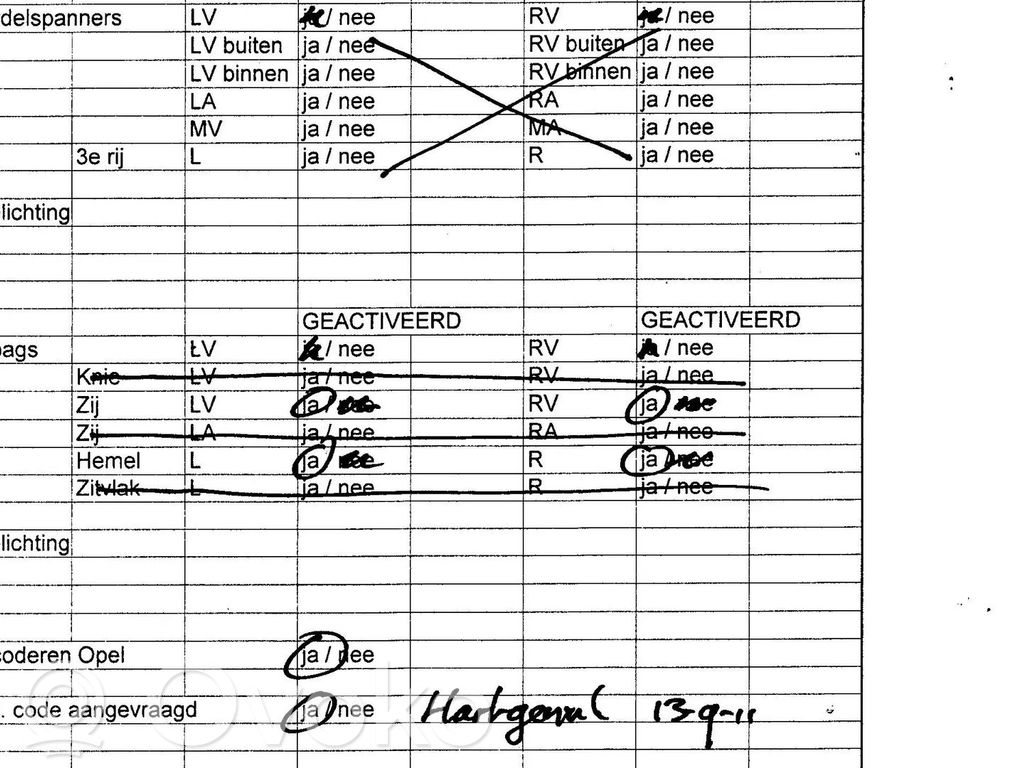 delspanners LV / nee RV / nee
LV buiten ja / nee RV buiten ja / nee
LV binnen ja / nee RV binnen ja / nee
LA ja / nee RA ja / nee
MV ja / nee MA ja / nee
3e rij L ja / nee R ja / nee
lichting
GEACTIVEERD GEACTIVEERD
bags LV / nee RV / nee
Knie LV ja / nee RV ja / nee
Zij LV ja / RV ja
Zij LA ja / nee RA ja / nee
Hemel L ja / R ja / nee
Zitvlak L ja / nee R ja / nee
lichting
soderen Opel ja / nee
. code aangevraagd ja / nee 13-9-11
Ovoko